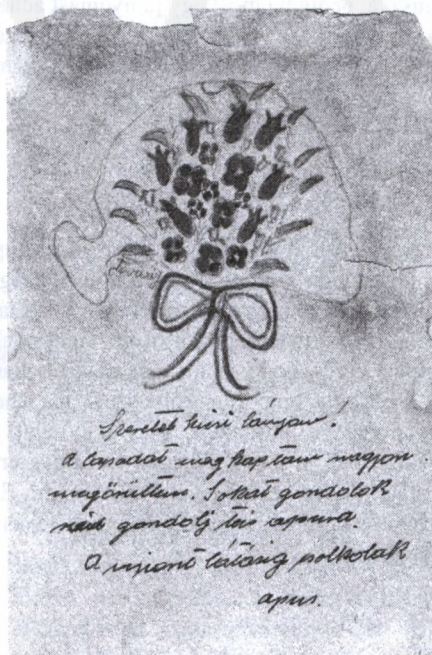 Szeretet kissi lányom!
A lapodat meg kaptam nagyon
megörültem. Sokat gondolok
reád gondolj teis apura.
A viszont látásig pólkolak
apus.